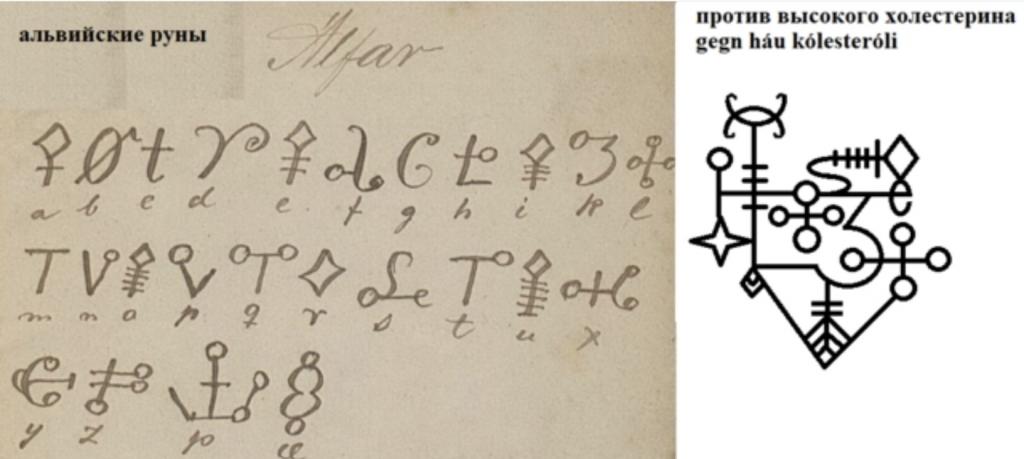 альвийские руны
Alfar
a b c d e f g h i k l
m n o p q r s t u x
y z þ æ
против высокого холестерина
gegn háu kólesteróli